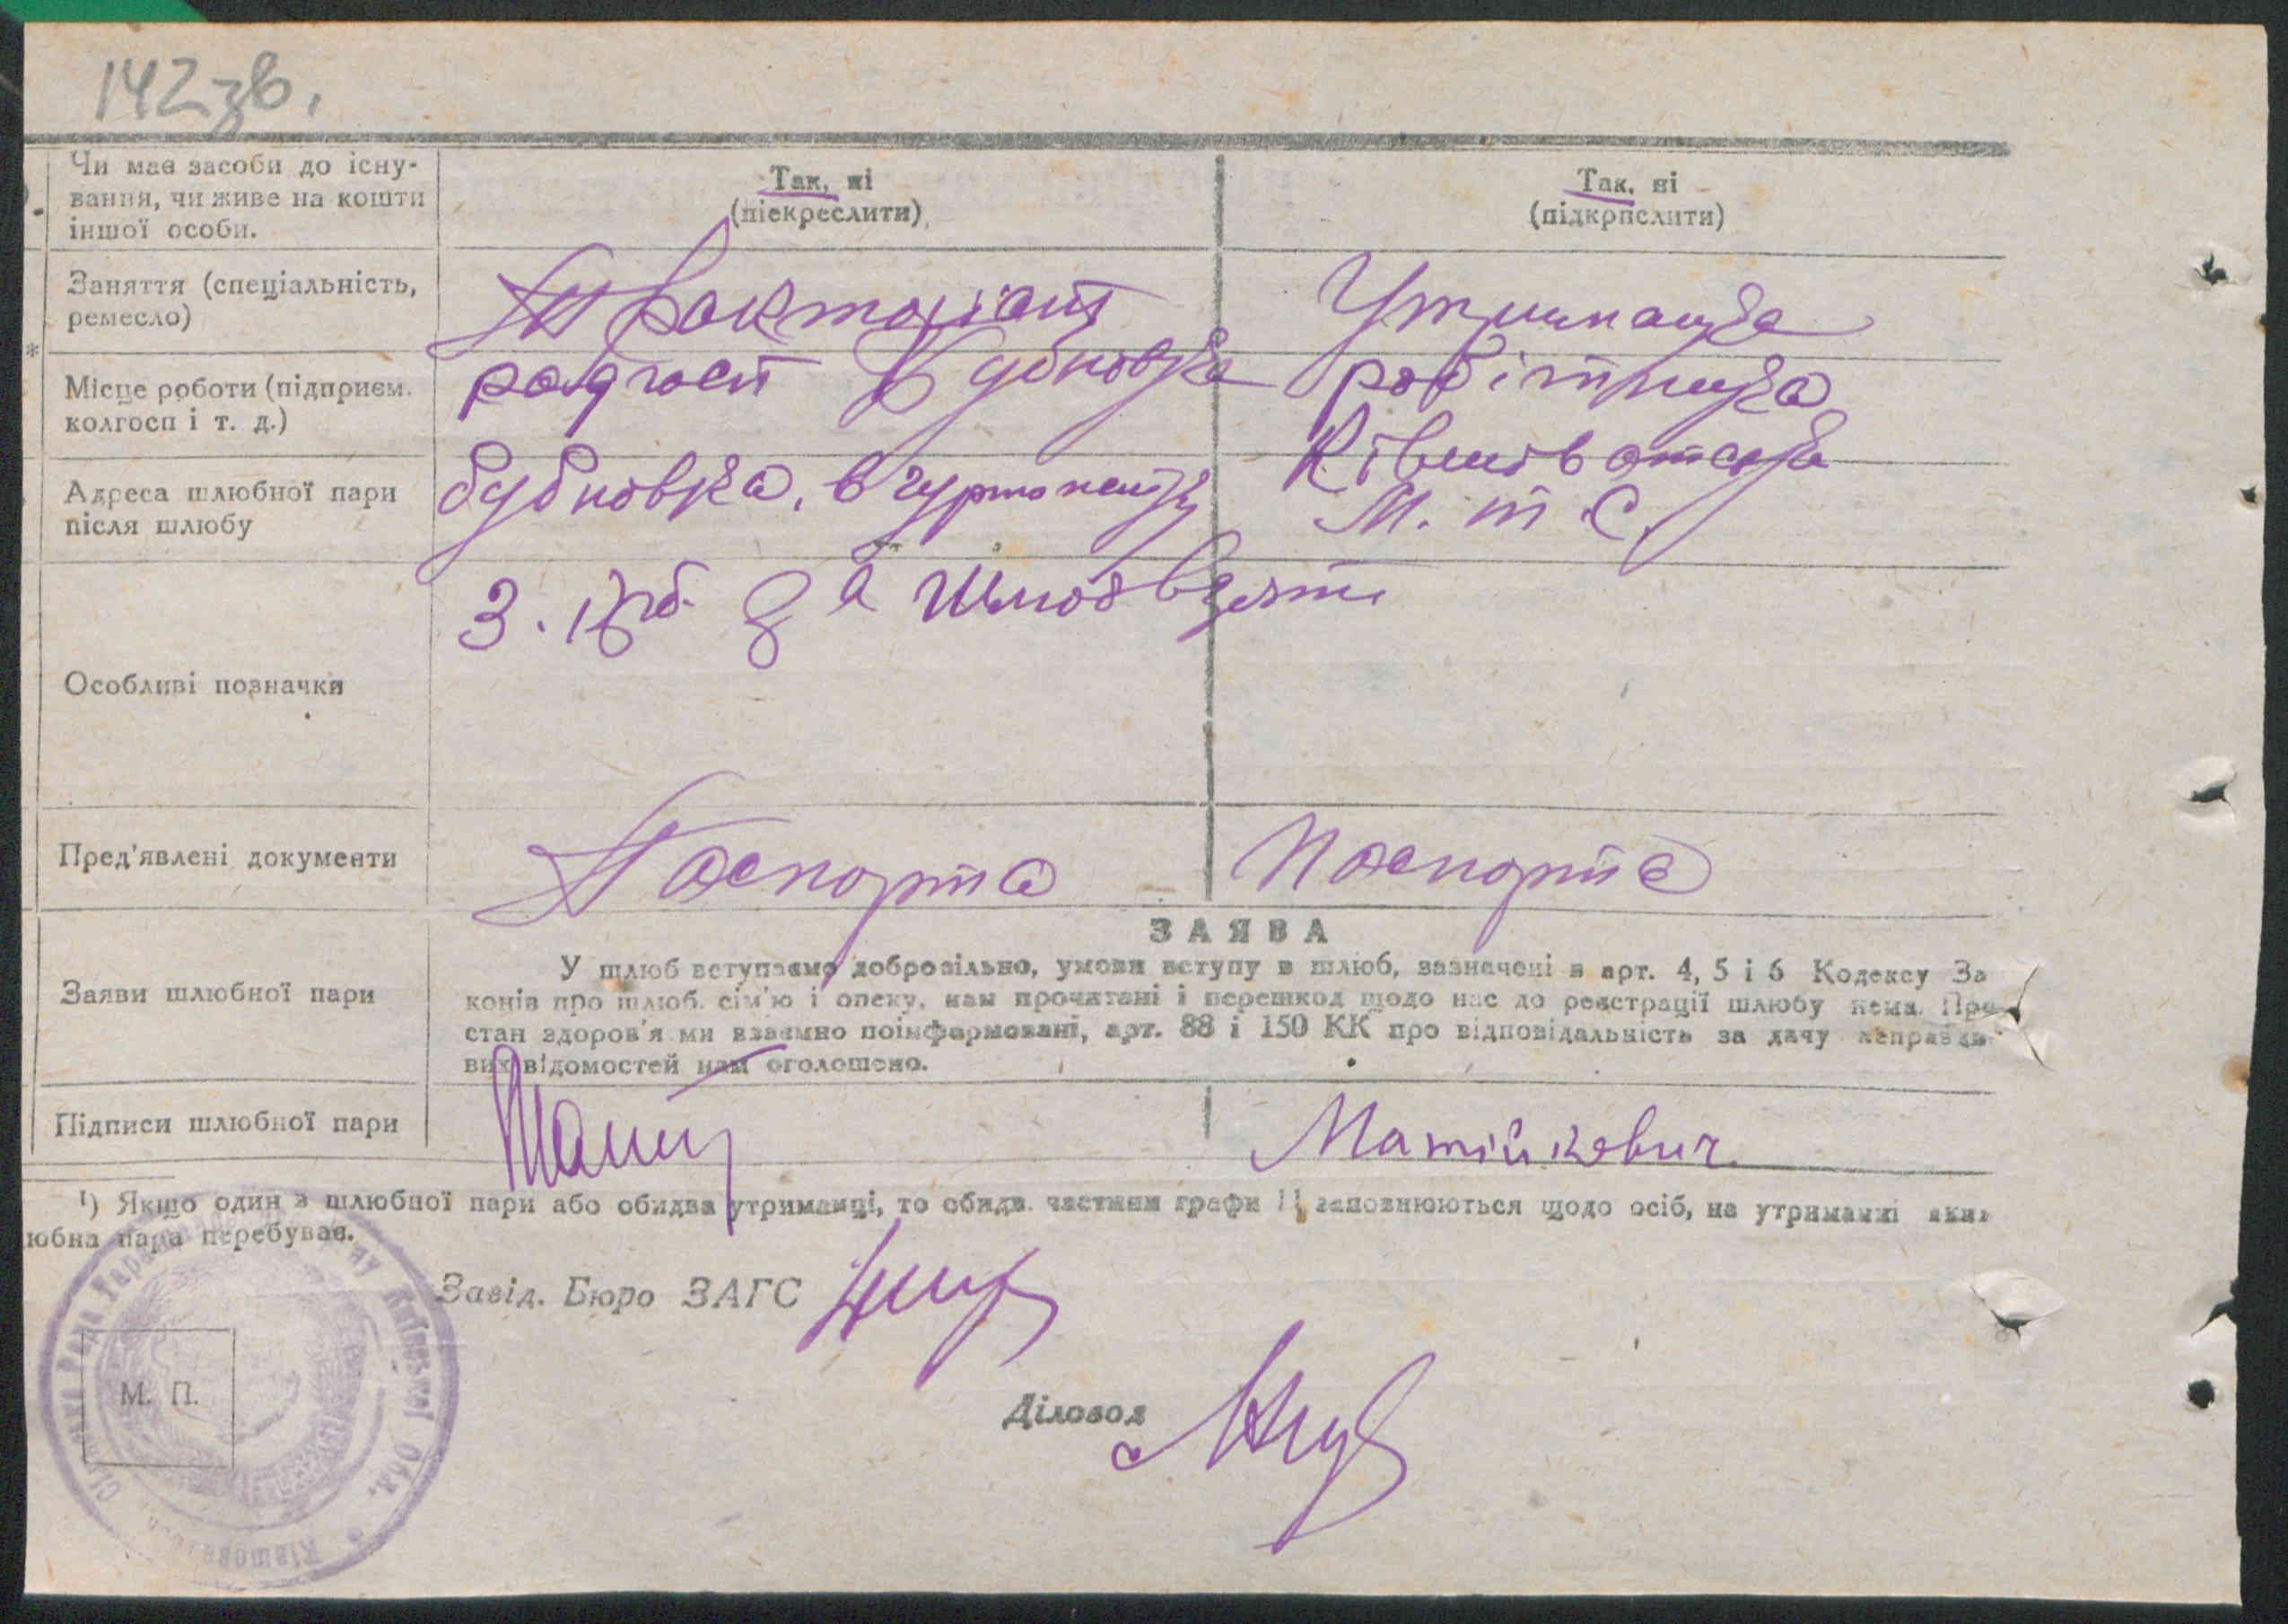 142 зв.
Чи має засоби до існу-
вання, чи живе на кошти
іншої особи.
Так, ні
(піекреслити)
Так, ні
(підкрислити)
Заняття (спеціальність,
ремесло)
Тракторіст
Утриманка
Місце роботи (підприєм.
колгосп і т. д.)
радгосп Бубновка
робітника
Ківшоватська
М. т С.
Адреса шлюбної пари
після шлюбу
бубновка, в гуртожитку
Особливі позначки
3. крб. за шлюб взяти
Пред'явлені документи
Паспорта
Паспорта
ЗАЯВА
Заяви шлюбної пари
У шлюб вступаємо добровільно, умови вступу в шлюб, зазначені в арт. 4, 5 і 6 Кодексу За
конів про шлюб. сім'ю і опеку, нам прочитані і перешкод щодо нас до реєстрації шлюбу нема. Про
стан здоров'я ми взаємно поінформовані, арт. 88 і 150 КК про відповідальність за дачу неправди
вих відомостей нам оголошено.
Підписи шлюбної пари
Матійкевич
¹) Якщо один з шлюбної пари або обидва утриманці, то обидв. частини графи 11 заповнюються щодо осіб, на утриманні яких
юбна пара перебуває.
Завід. Бюро ЗАГС
Діловод
М. П.